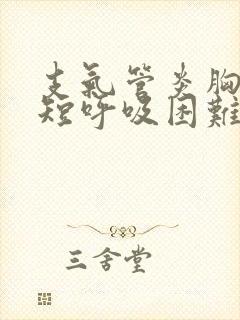 支氣管炎胸
短呼吸困難
三舍堂